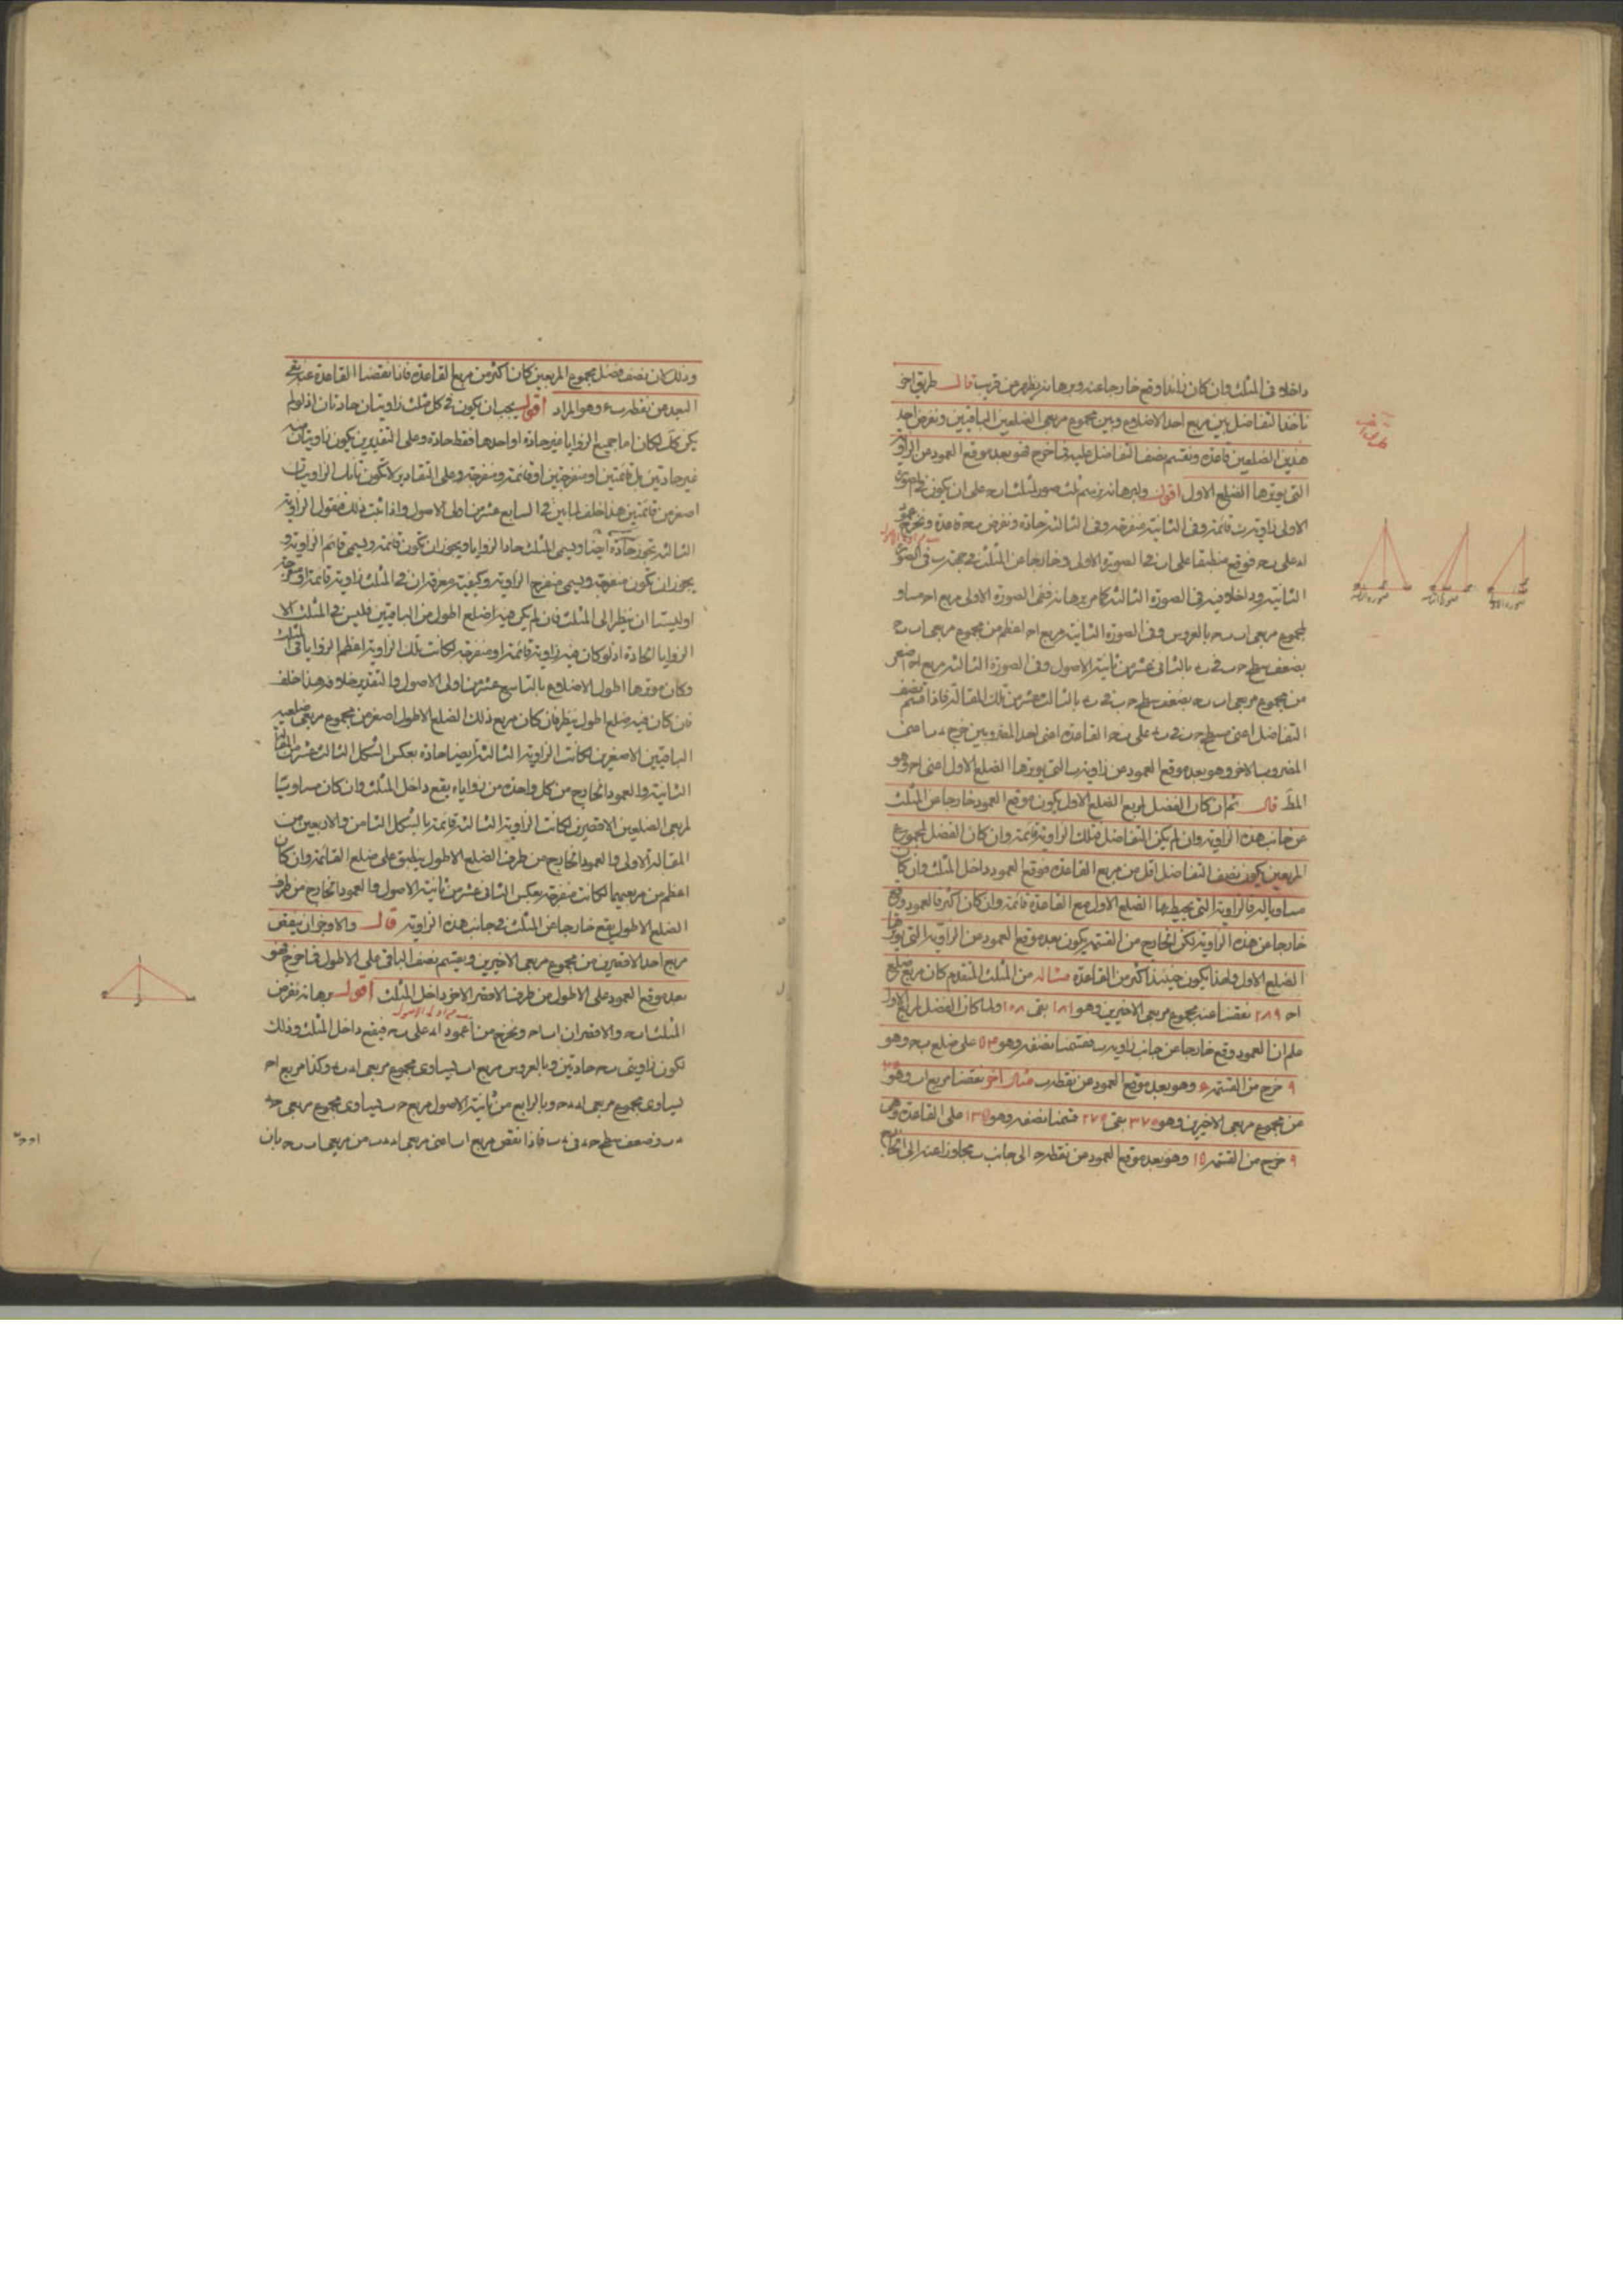 داخلا فى المثلث وان كان زائدا وقع خارجا عنه وبرهانه يظهر من قريب قال طريق اخر
ناخذ التفاضل بين مربع احد الاضلاع وبين مجموع مربعى الضلعين الباقيين ونفرض احد
هذين الضلعين قاعدة ونقسم نصف التفاضل عليه فما خرج فهو بعد موقع العمود من الزاوية
التى يوترها الضلع الاول اقول ولبرهانه نرسم ثلث صور لمثلث ا ب ح على ان يكون فى الصورة
الاولى زاوية ب قائمة وفى الثانية منفرجة وفى الثالثة حادة ونفرض ب ح قاعدة ونخرج عمود
ا د على ب ح فوقع منطبقا على ا ب فى الصورة الاولى وخارجا عن المثلث فى جهة ب فى الصورة
الثانية وداخلا فيه فى الصورة الثالثة كما مر برهانه ففى الصورة الاولى مربع ا ح مساو
لمجموع مربعى ا ب ب ح بالعروس وفى الصورة الثانية مربع ا ح اعظم من مجموع مربعى ا ب ب ح
بضعف سطح ح ب فى ب د بالثانى عشر من ثانية الاصول وفى الصورة الثالثة مربع ا ح اصغر
من مجموع مربعى ا ب ب ح بضعف سطح ح ب فى ب د بالثالث عشر من تلك المقالة فاذا قسم نصف
التفاضل اعنى مسطح ح ب فى ب د على ب ح القاعدة اعنى احد المضروبين خرج د ب اعنى
المضروب الاخر وهو بعد موقع العمود من زاوية ب التى يوترها الضلع الاول اعنى ا ح وهو
المط قال ثم ان كان الفضل لمربع الضلع الاول يكون موقع العمود خارجا عن المثلث
عن جانب هذه الزاوية وان لم يكن التفاضل فتلك الزاوية قائمة وان كان الفضل لمجموع
المربعين يكون نصف التفاضل اقل من مربع القاعدة فوقع العمود داخل المثلث وان كان
مساويا له فالزاوية التى يحيط بها الضلع الاول مع القاعدة قائمة وان كان اكثر فالعمود وقع
خارجا عن هذه الزاوية لكن الخارج من القسمة يكون بعد موقع العمود من الزاوية التى يوترها
الضلع الاول ولهذا يكون حينئذ اكثر من القاعدة مثاله من المثلث المتقدم كان مربع ضلع
ا ح ٢٨٩ نقصنا عنه مجموع مربعى الاخيرين وهو ١٨١ بقى ١٠٨ ولما كان الفضل لمربع الاول
علم ان العمود وقع خارجا عن جانب زاوية ب فقسمنا نصفه وهو ٥٤ على ضلع ب ح وهو
٩ خرج من القسمة ٦ وهو بعد موقع العمود عن نقطة ب مثال اخر نقصنا مربع ا ب وهو
من مجموع مربعى الاخيرين وهو ٣٧٠ بقى ٢٧٠ قسمنا نصفه وهو ١٣٥ على القاعدة وهى
٩ خرج من القسمة ١٥ وهو بعد موقع العمود عن نقطة ح الى جانب ب مجاوزا عنه الى الخارج
صورة اولى
صورة ثانية
صورة ثالثة
وذلك لان نصف فضل مجموع المربعين كان اكثر من مربع القاعدة فاذا نقصنا القاعدة عنه بقى
البعد من نقطة ب ٦ وهو المراد اقول يجب ان يكون فى كل مثلث زاويتان حادتان اذ لو لم
يكن كك لكان اما جميع الزوايا غير حادة او احدها فقط حادة وعلى التقديرين يكون زاويتان منه
غير حادتين بل قائمتين او منفرجتين او قائمة ومنفرجة وعلى التقادير لا تكون تانك الزاويتان
اصغر من قائمتين هذا خلف لما بين فى السابع عشر من اولى الاصول واذا ثبت ذلك فنقول الزاوية
الثالثة تجوز حادة ايضا ويسمى المثلث حاد الزوايا ويجوز ان تكون قائمة ويسمى قائم الزاوية و
يجوز ان تكون منفرجة ويسمى منفرج الزاوية وكيفية معرفة ان فى المثلث زاوية قائمة او منفرجة
او ليستا ان ينظر الى المثلث فان لم يكن فيه ضلع اطول من الباقيين فليس فى المثلث الا
الزوايا الحادة اذ لو كان فيه زاوية قائمة او منفرجة لكانت تلك الزاوية اعظم الزوايا فى المثلث
وكان موترها اطول الاضلاع بالتاسع عشر من اولى الاصول والتقدير خلافه هذا خلف
فان كان فيه ضلع اطول ينظر فان كان مربع ذلك الضلع الاطول اصغر من مجموع مربعى ضلعيه
الباقيين الاصغرين لكانت الزاوية الثالثة ايضا حادة بعكس الشكل الثالث عشر من المقالة
الثانية والعمود الخارج من كل واحدة من زواياه يقع داخل المثلث وان كان مساويا
لمربعى الضلعين الاقصرين لكانت الزاوية الثالثة قائمة بالشكل الثامن والاربعين من
المقالة الاولى والعمود الخارج من طرف الضلع الاطول ينطبق على ضلع القائمة وان كان
اعظم من مربعيهما لكانت منفرجة بعكس الثانى عشر من ثانية الاصول والعمود الخارج من طرف
الضلع الاطول يقع خارجا عن المثلث فى جانب هذه الزاوية قال والاوجز ان ينقص
مربع احد الاقصرين من مجموع مربعى الاخيرين ويقسم نصف الباقى على الاطول فما خرج فهو
بعد موقع العمود على الاطول من طرف الاقصر الاخر داخل المثلث اقول برهانه نفرض
المثلث ا ب ح والاقصران ا ب ا ح ونخرج من ا عمود ا د على ب ح فيقع داخل المثلث وذلك
لكون زاويتى ب ح حادتين وبالعروس مربع ا ب يساوى مجموع مربعى ا د د ب وكذا مربع ا ح
يساوى مجموع مربعى ا د د ح وبالرابع من ثانية الاصول مربع ح ب يساوى مجموع مربعى ح د
د ب وضعف سطح ح د فى د ب فاذا نقص مربع ا ب اعنى مربعى ا د د ب من مربعى ا ب ب ح بان